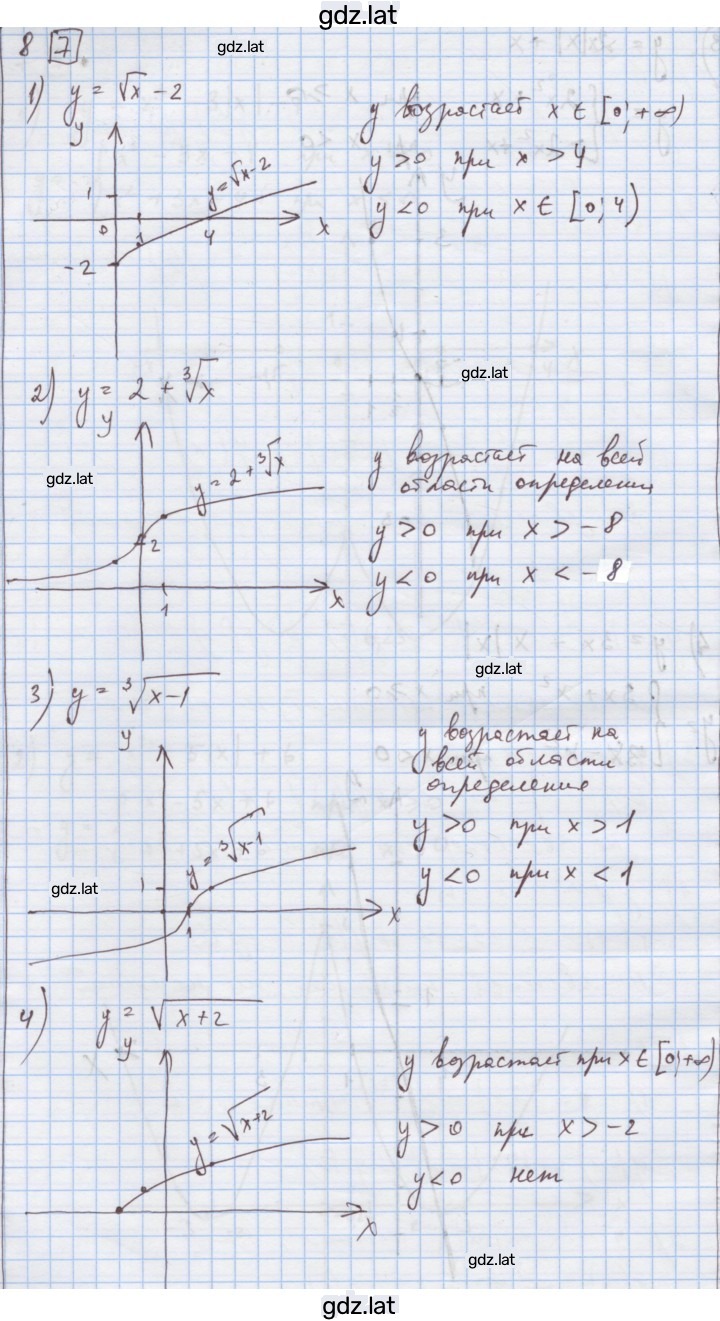 gdz.lat
8 7
gdz.lat
1) y = √x - 2
y возрастает x ∈ [0; +∞)
y > 0 при x > 4
y < 0 при x ∈ [0; 4)
y
1
y = √x - 2
0 1 4 x
-2
gdz.lat
2) y = 2 + ∛x
y
gdz.lat
y = 2 + ∛x
y возрастает на всей
области определения
y > 0 при x > -8
y < 0 при x < -8
2
1 x
gdz.lat
3) y = ∛(x-1)
y
y возрастает на
всей области
определения
y > 0 при x > 1
y < 0 при x < 1
y = ∛(x-1)
gdz.lat
1
1 x
4) y = √(x+2)
y
y возрастает при x ∈ [0; +∞)
y > 0 при x > -2
y < 0 нет
y = √(x+2)
x
gdz.lat
gdz.lat